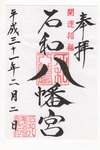 奉拝
開運招福
石和八幡宮
平成三十一年二月二日